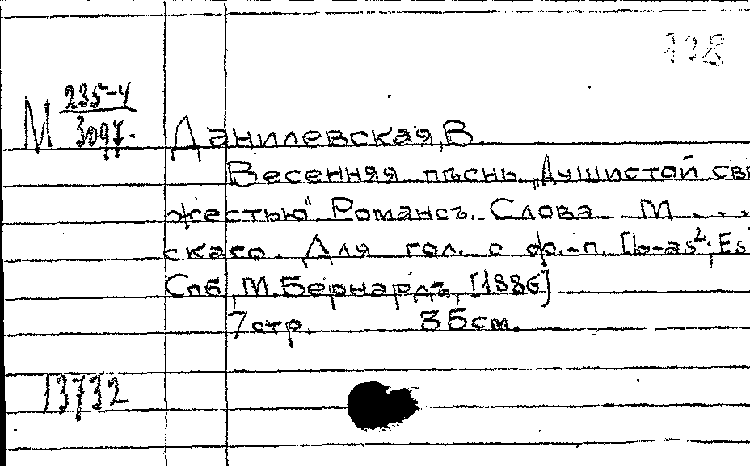 738
М 235-4
3097.
Данилевская, В.
Весенняя пѣснь „Душистой све
жестью" Романсъ. Слова М . . .
скаго. Для гол. с ф.-п. [b-as²; Es
Спб, М. Бернардъ, [1886]
7 стр. 35 см.
13732